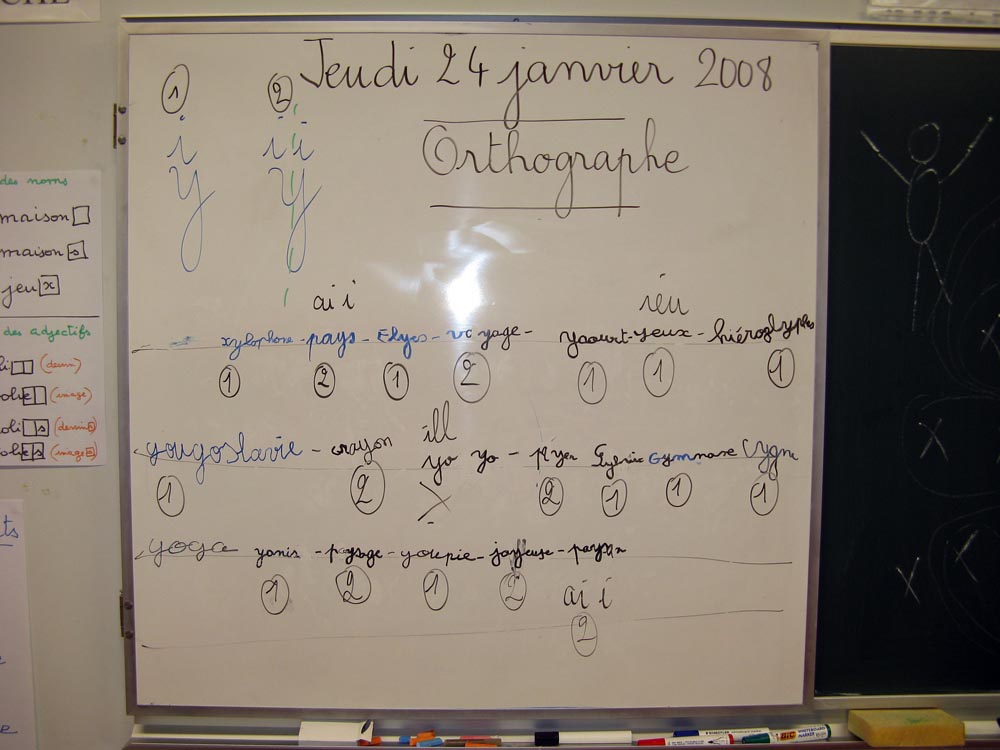 Jeudi 24 janvier 2008
1 2
i ii
y y
Orthographe
ai i ieu
xylophone - pays - Elyes - voyage -
yaourt - yeux - hiéroglyphes
1 2 1 2 1 1 1
ill
yougoslavie - crayon yo yo - Gymnase Cygne
1 2 2 1 1 1
yoga yanis - paysage - youpie - joyeuse - paysan
1 2 1 2 ai i
2
des noms
maison
maison s
jeu x
des adjectifs
(dessin)
(image)
BIC